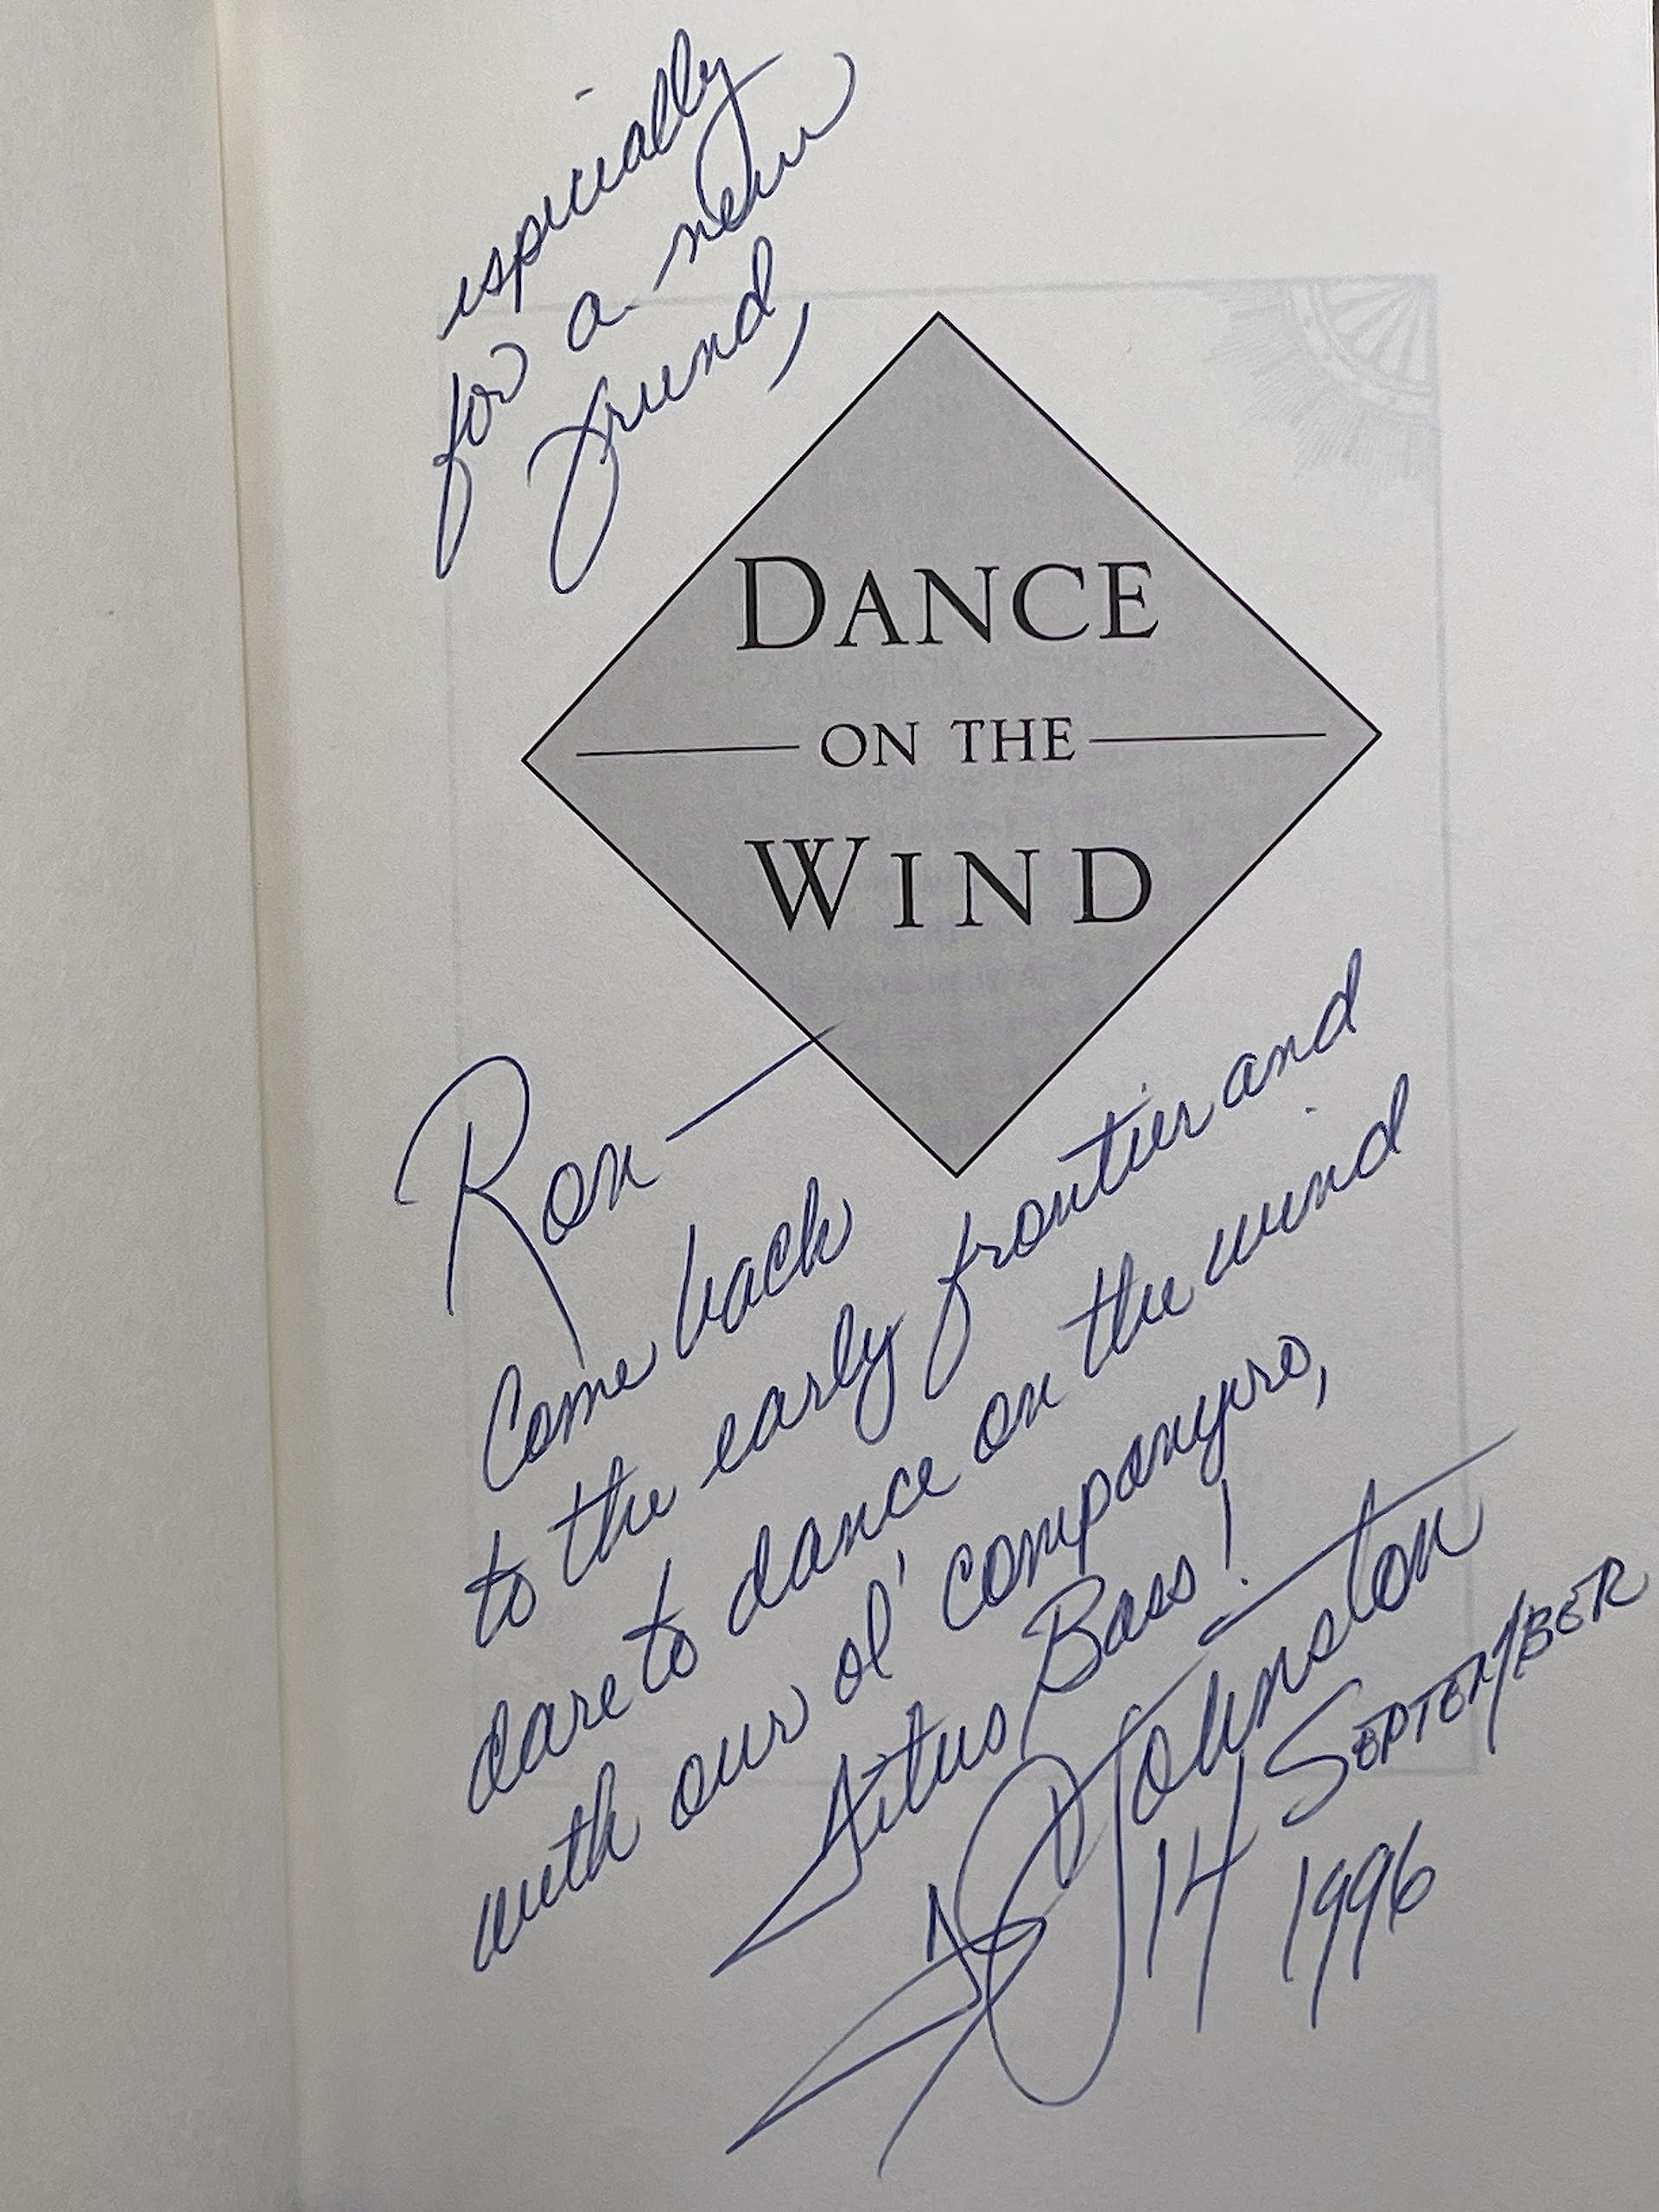 especially
for a new
friend,
DANCE
ON THE
WIND
Ron —
Come back
to the early frontier and
dare to dance on the wind
with our ol' companyero,
Titus Bass!
Johnston
14 SEPTEMBER
1996